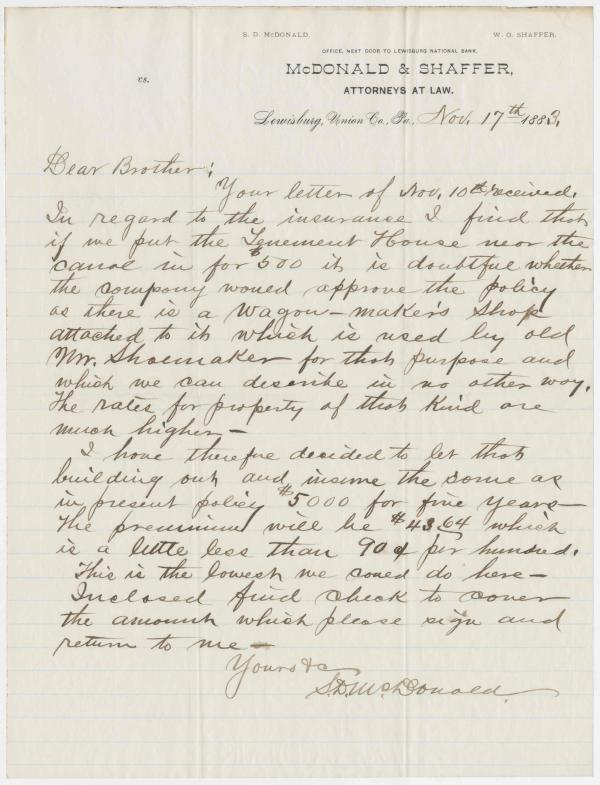 S. D. McDONALD.
W. O. SHAFFER.
OFFICE, NEXT DOOR TO LEWISBURG NATIONAL BANK.
vs.
McDONALD & SHAFFER,
ATTORNEYS AT LAW.
Lewisburg, Union Co., Pa., Nov. 17th 1883.
Dear Brother:
Your letter of Nov. 10th received.
In regard to the insurance I find that
if we put the Tenement House near the
canal in for $500 it is doubtful whether
the company would approve the policy
as there is a Wagon-maker's Shop
attached to it which is used by old
Mr. Shoemaker for that purpose and
which we can describe in no other way.
The rates for property of that kind are
much higher—
I have therefore decided to let that
building out and insure the same as
in present policy $5000 for five years—
The premium will be $43,64 which
is a little less than 90¢ per hundred.
This is the lowest we could do here—
Inclosed find check to cover
the amount which please sign and
return to me—
Yours &c
S.D. McDonald.